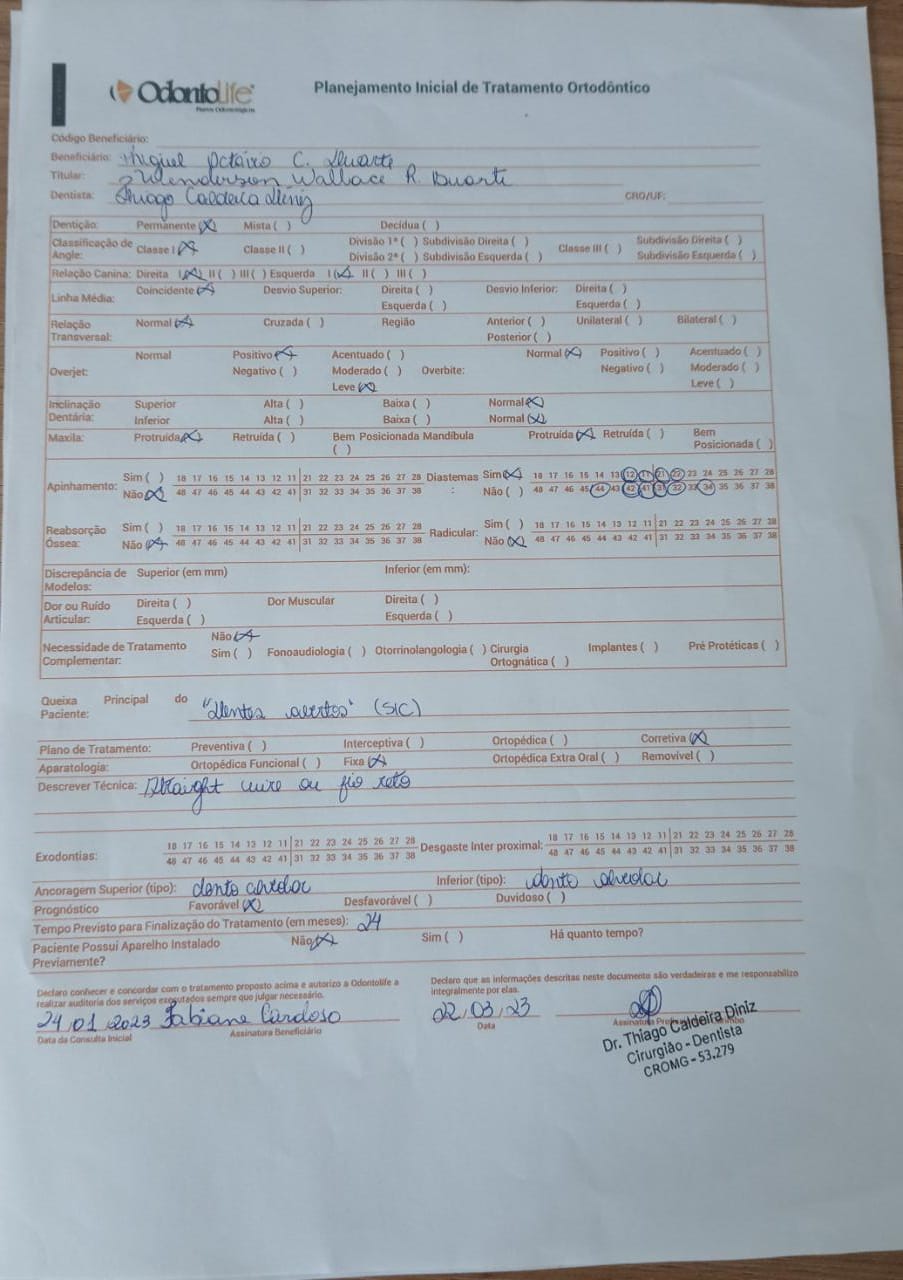 OdontoLife
Planos Odontológicos
Planejamento Inicial de Tratamento Ortodôntico
Código Beneficiário:
Beneficiário: Miguel Octávio C. Duarte
Titular: Wallace R. Duarte
Dentista: Thiago Caldeira Diniz CRO/UF:
Dentição: Permanente (X) Mista ( ) Decídua ( )
Classificação de Angle: Classe I (X) Classe II ( ) Divisão 1ª ( ) Subdivisão Direita ( ) Classe III ( ) Subdivisão Direita ( )
Divisão 2ª ( ) Subdivisão Esquerda ( ) Subdivisão Esquerda ( )
Relação Canina: Direita I (X) II ( ) III ( ) Esquerda I (X) II ( ) III ( )
Linha Média: Coincidente (X) Desvio Superior: Direita ( ) Desvio Inferior: Direita ( )
Esquerda ( ) Esquerda ( )
Relação Transversal: Normal (X) Cruzada ( ) Região Anterior ( ) Unilateral ( ) Bilateral ( )
Posterior ( )
Normal Positivo (X) Acentuado ( ) Normal (X) Positivo ( ) Acentuado ( )
Overjet: Negativo ( ) Moderado ( ) Overbite: Negativo ( ) Moderado ( )
Leve (X) Leve ( )
Inclinação Dentária: Superior Alta ( ) Baixa ( ) Normal (X)
Inferior Alta ( ) Baixa ( ) Normal (X)
Maxila: Protruída (X) Retruída ( ) Bem Posicionada ( ) Mandíbula Protruída (X) Retruída ( ) Bem Posicionada ( )
Apinhamento: Sim ( ) 18 17 16 15 14 13 12 11 21 22 23 24 25 26 27 28 Diastemas: Sim (X) 18 17 16 15 14 13 12 11 21 22 23 24 25 26 27 28
Não (X) 48 47 46 45 44 43 42 41 31 32 33 34 35 36 37 38 Não ( ) 48 47 46 45 44 43 42 41 31 32 33 34 35 36 37 38
Reabsorção Óssea: Sim ( ) 18 17 16 15 14 13 12 11 21 22 23 24 25 26 27 28 Radicular: Sim ( ) 18 17 16 15 14 13 12 11 21 22 23 24 25 26 27 28
Não (X) 48 47 46 45 44 43 42 41 31 32 33 34 35 36 37 38 Não (X) 48 47 46 45 44 43 42 41 31 32 33 34 35 36 37 38
Discrepância de Modelos: Superior (em mm) Inferior (em mm):
Dor ou Ruído Articular: Direita ( ) Dor Muscular Direita ( )
Esquerda ( ) Esquerda ( )
Não (X)
Necessidade de Tratamento Complementar: Sim ( ) Fonoaudiologia ( ) Otorrinolangologia ( ) Cirurgia Ortognática ( ) Implantes ( ) Pré Protéticas ( )
Queixa Principal do Paciente: "Dentes abertos" (SIC)
Plano de Tratamento: Preventiva ( ) Interceptiva ( ) Ortopédica ( ) Corretiva (X)
Aparatologia: Ortopédica Funcional ( ) Fixa (X) Ortopédica Extra Oral ( ) Removível ( )
Descrever Técnica: Straight wire ou fio reto
Exodontias: 18 17 16 15 14 13 12 11 21 22 23 24 25 26 27 28 Desgaste Inter proximal: 18 17 16 15 14 13 12 11 21 22 23 24 25 26 27 28
48 47 46 45 44 43 42 41 31 32 33 34 35 36 37 38 48 47 46 45 44 43 42 41 31 32 33 34 35 36 37 38
Ancoragem Superior (tipo): dento alveolar Inferior (tipo): dento alveolar
Prognóstico Favorável (X) Desfavorável ( ) Duvidoso ( )
Tempo Previsto para Finalização do Tratamento (em meses): 24
Paciente Possui Aparelho Instalado Previamente? Não (X) Sim ( ) Há quanto tempo?
Declaro conhecer e concordar com o tratamento proposto acima e autorizo a Odontolife a
realizar auditoria dos serviços executados sempre que julgar necessário.
Declaro que as informações descritas neste documento são verdadeiras e me responsabilizo
integralmente por elas.
24/01/2023 Fabiane Cardoso 22/03/23
Data da Consulta Inicial Assinatura Beneficiário Data
Dr. Thiago Caldeira Diniz
Cirurgião - Dentista
CROMG - 53.279